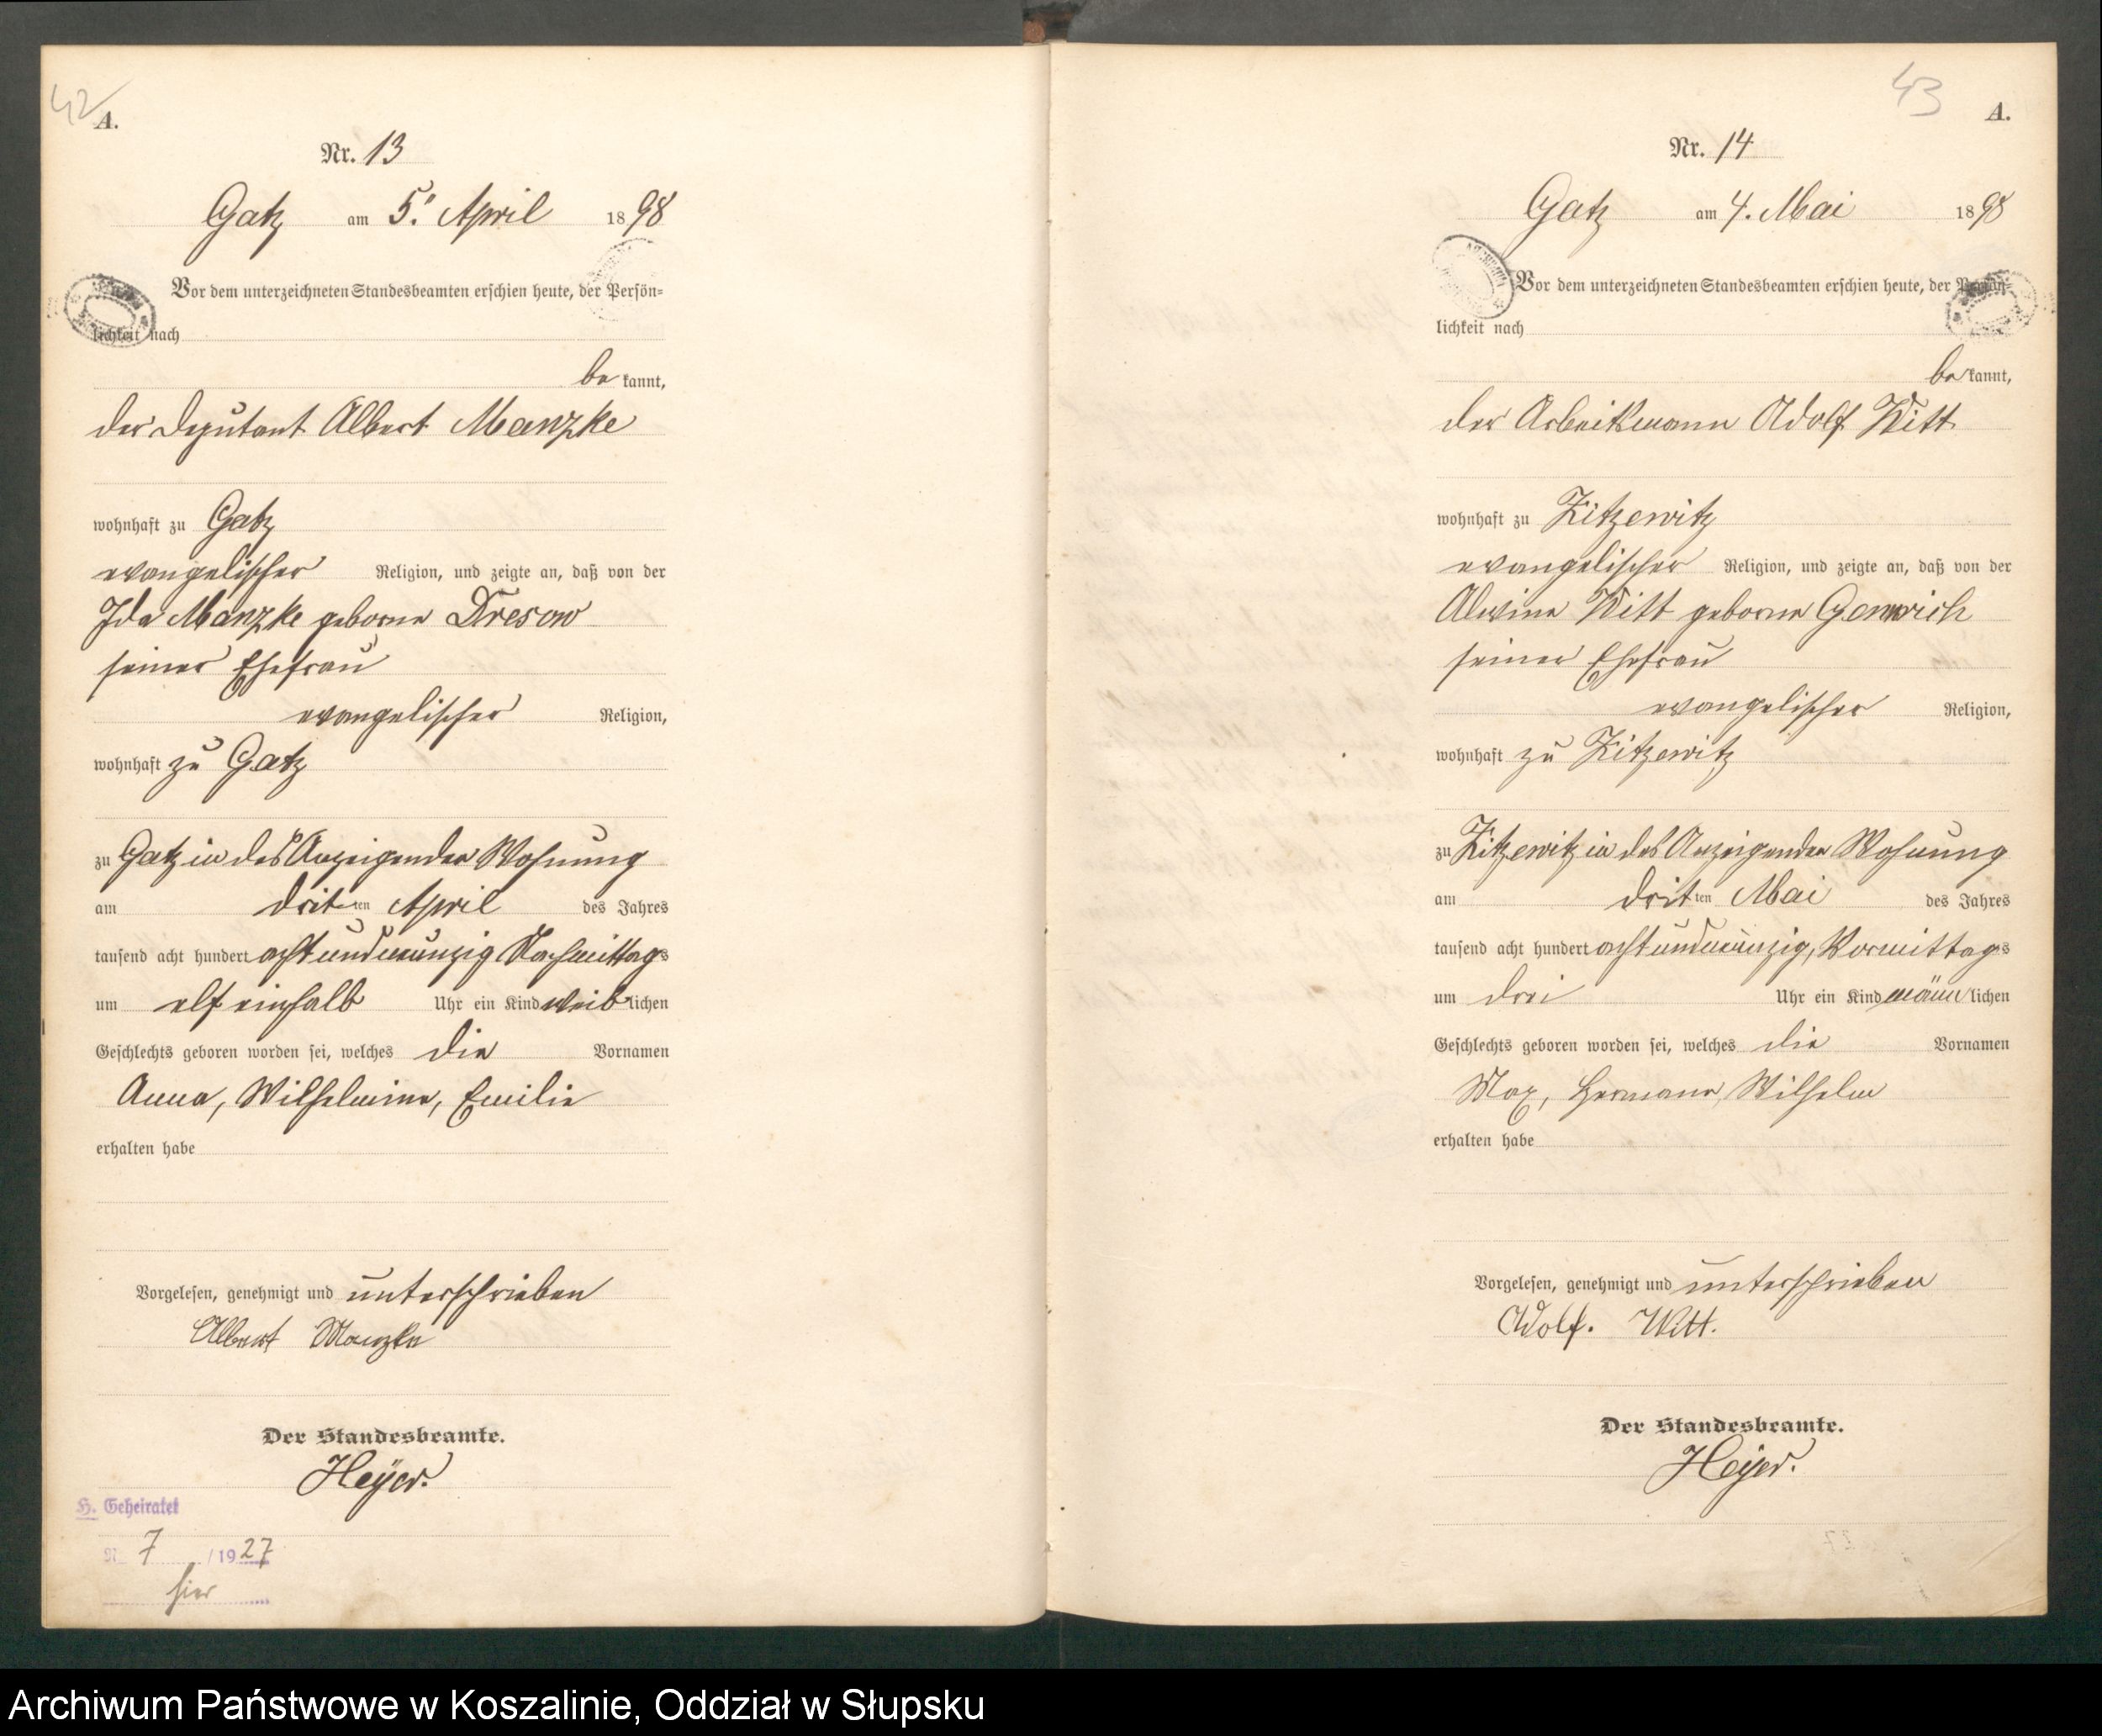 42
A.
Nr. 13
Gatz am 5. April 1898
Vor dem unterzeichneten Standesbeamten erschien heute, der Persön=
lichkeit nach
be kannt,
der Deputant Albert Manzke
wohnhaft zu Gatz
evangelischer Religion, und zeigte an, daß von der
Ida Manzke geborne Dresow
seiner Ehefrau
evangelischer Religion,
wohnhaft zu Gatz
zu Gatz in des Anzeigenden Wohnung
am dritten April des Jahres
tausend acht hundert achtundneunzig Nachmittags
um elf einhalb Uhr ein Kind weiblichen
Geschlechts geboren worden sei, welches die Vornamen
Anna, Wilhelmine, Emilie
erhalten habe
Vorgelesen, genehmigt und unterschrieben
Albert Manzke
Der Standesbeamte.
Heyer.
H. Geheiratet
N 7 /1927
hier
43
A.
Nr. 14
Gatz am 4. Mai 1898
Vor dem unterzeichneten Standesbeamten erschien heute, der Persön=
lichkeit nach
be kannt,
der Arbeitsmann Adolf Witt
wohnhaft zu Zitzewitz
evangelischer Religion, und zeigte an, daß von der
Alwine Witt geborne
seiner Ehefrau
evangelischer Religion,
wohnhaft zu Zitzewitz
zu Zitzewitz in des Anzeigenden Wohnung
am dritten Mai des Jahres
tausend acht hundert achtundneunzig, Vormittags
um drei Uhr ein Kind männlichen
Geschlechts geboren worden sei, welches die Vornamen
Max, Hermann, Wilhelm
erhalten habe
Vorgelesen, genehmigt und unterschrieben
Adolf. Witt.
Der Standesbeamte.
Heyer.
Archiwum Państwowe w Koszalinie, Oddział w Słupsku